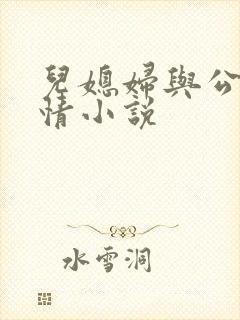 兒媳婦與公
情小說
水雪洞